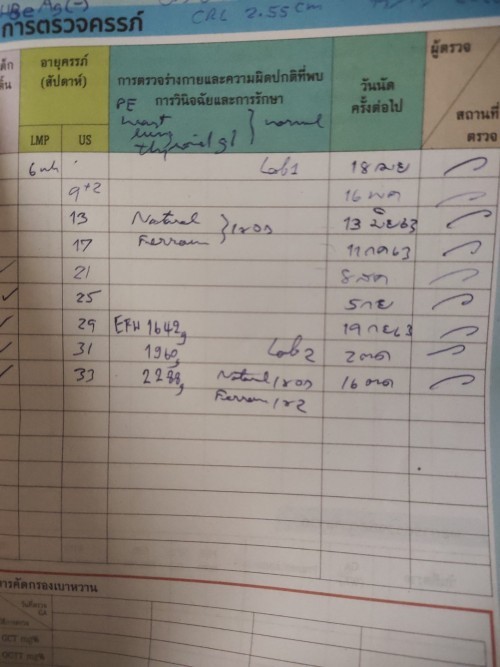 HBeAg(-)
CRL 2.55 cm
การตรวจครรภ์
อายุครรภ์
(สัปดาห์)
LMP
US
การตรวจร่างกายและความผิดปกติที่พบ
การวินิจฉัยและการรักษา
PE
heart
lung
thyroid gl
} normal
วันนัด
ครั้งต่อไป
ผู้ตรวจ
สถานที่
ตรวจ
6 wk Lab1 18 เมย
9+2 16 พค
13 Natural 13 มิย 63
17 Ferrous 11 กค 63
21 8 สค
25 5 กย
29 EFW 1642g 19 กย 63
31 1960g Lab2 2 ตค
33 2288g Natural 16 ตค
Ferrous 1x2
การคัดกรองเบาหวาน
GA
GCT mg%
OGTT mg%